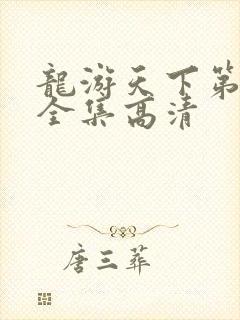 龍游天下第
全集高清
唐三葬